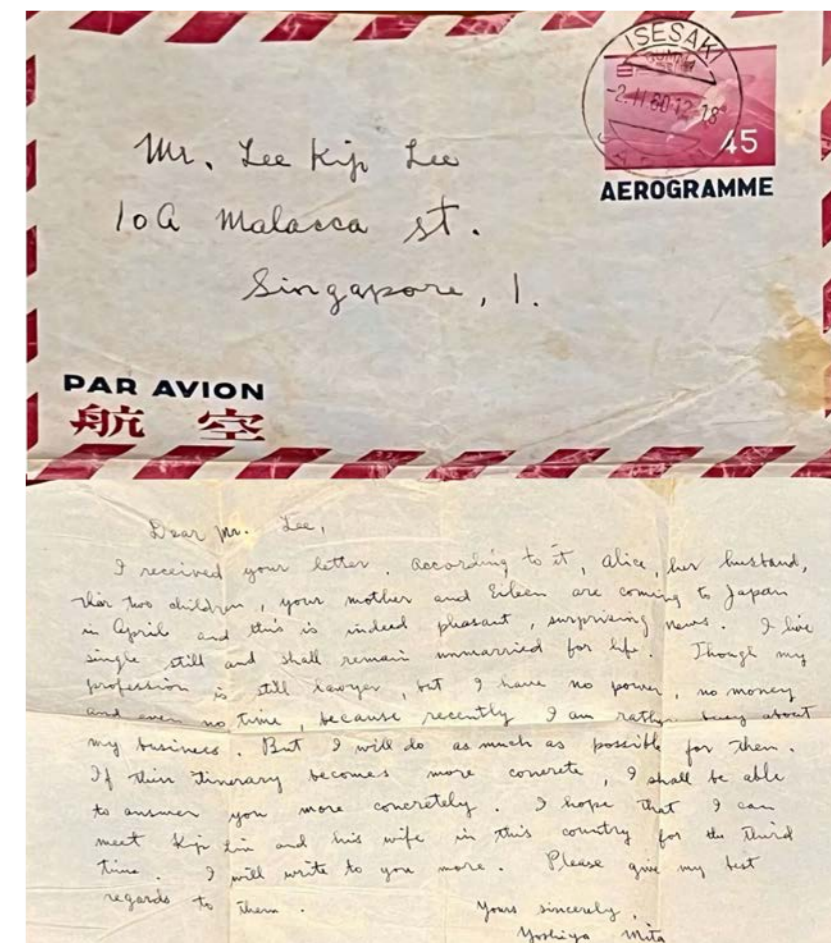 ISESAKI
-2.11.60.12-18
45
AEROGRAMME
Mr. Lee Kip Lee
10A Malacca st.
Singapore, 1.
PAR AVION
航空
Dear Mr. Lee,
I received your letter. According to it, Alice, her husband,
their two children, your mother and Eileen are coming to Japan
in April and this is indeed pleasant, surprising news. I live
single still and shall remain unmarried for life. Though my
profession is still lawyer, but I have no power, no money
and even no time, because recently I am rather busy about
my business. But I will do as much as possible for them.
If their itinerary becomes more concrete, I shall be able
to answer you more concretely. I hope that I can
meet Kip Lin and his wife in this country for the third
time. I will write to you more. Please give my best
regards to them.
Yours sincerely,
Yoshiya Mita